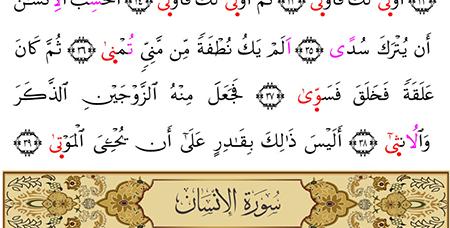 أَوۡلَىٰ لَكَ فَأَوۡلَىٰ ٣٤ ثُمَّ أَوۡلَىٰ لَكَ فَأَوۡلَىٰ
أَن يُتۡرَكَ سُدًى ٣٥ اَلَمۡ يَكُ نُطۡفَةً مِّن مَّنِيّٖ تُمۡنۭىٰ ٣٦ ثُمَّ كَانَ
عَلَقَةً فَخَلَقَ فَسَوّۭىٰ ٣٧ فَجَعَلَ مِنۡهُ اُ۬لزَّوۡجَيۡنِ اِ۬لذَّكَرَ
وَالُانثۭىٰٓ ٣٨ أَلَيۡسَ ذَٰلِكَ بِقَٰدِرٍ عَلَىٰٓ أَن يُحۡـِۧيَ اَ۬لۡمَوۡتۭىٰ ٣٩
سُورَةُ الإِنسَانِ